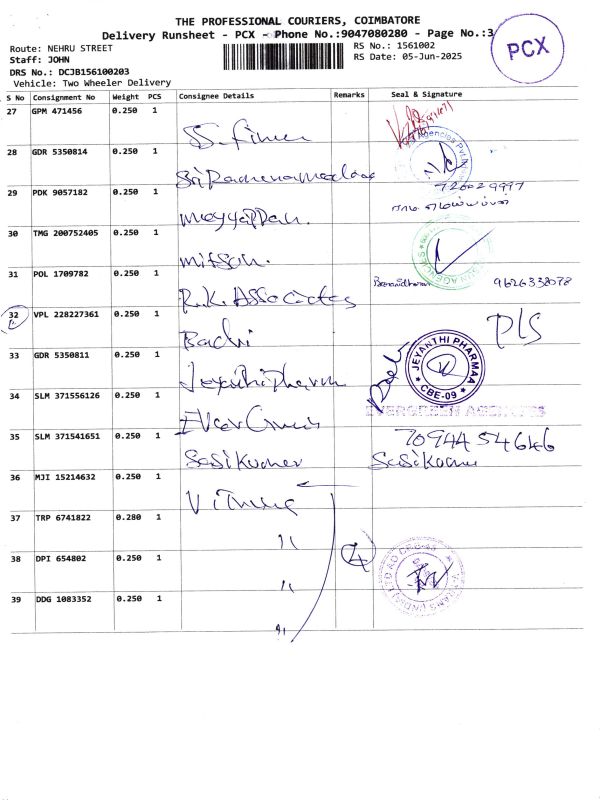 THE PROFESSIONAL COURIERS, COIMBATORE
Delivery Runsheet - PCX - Phone No.:9047080280 - Page No.:3
PCX
Route: NEHRU STREET
RS No.: 1561002
Staff: JOHN
RS Date: 05-Jun-2025
DRS No.: DCJB156100203
Vehicle: Two Wheeler Delivery
S No Consignment No Weight PCS Consignee Details Remarks Seal & Signature
27 GPM 471456 0.250 1
28 GDR 5350814 0.250 1
29 PDK 9057182 0.250 1 Meyyappan.
30 TMG 200752405 0.250 1 mitson.
31 POL 1709782 0.250 1 R.K. Associates 9626338078
32 VPL 228227361 0.250 1 Badri PLS
33 GDR 5350811 0.250 1 JEYANTHI PHARMAA CBE-09
34 SLM 371556126 0.250 1 EVERGREEN AGENCIES
35 SLM 371541651 0.250 1 Sasikumar 7094454646
Sasikumar
36 MJI 15214632 0.250 1
37 TRP 6741822 0.280 1 "
38 DPI 654802 0.250 1 " 4
39 DDG 1083352 0.250 1 "